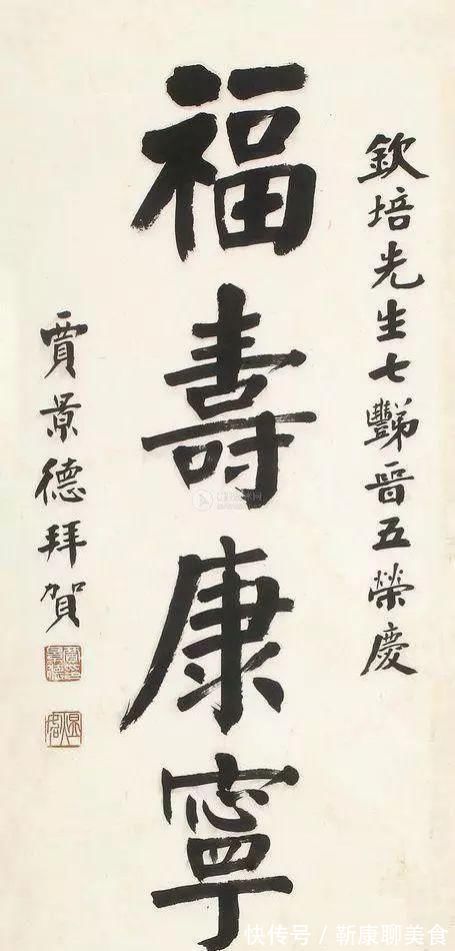 欽培先生七豑晉五榮慶
福壽康寧
賈景德拜賀
快传号/靳康聊美食